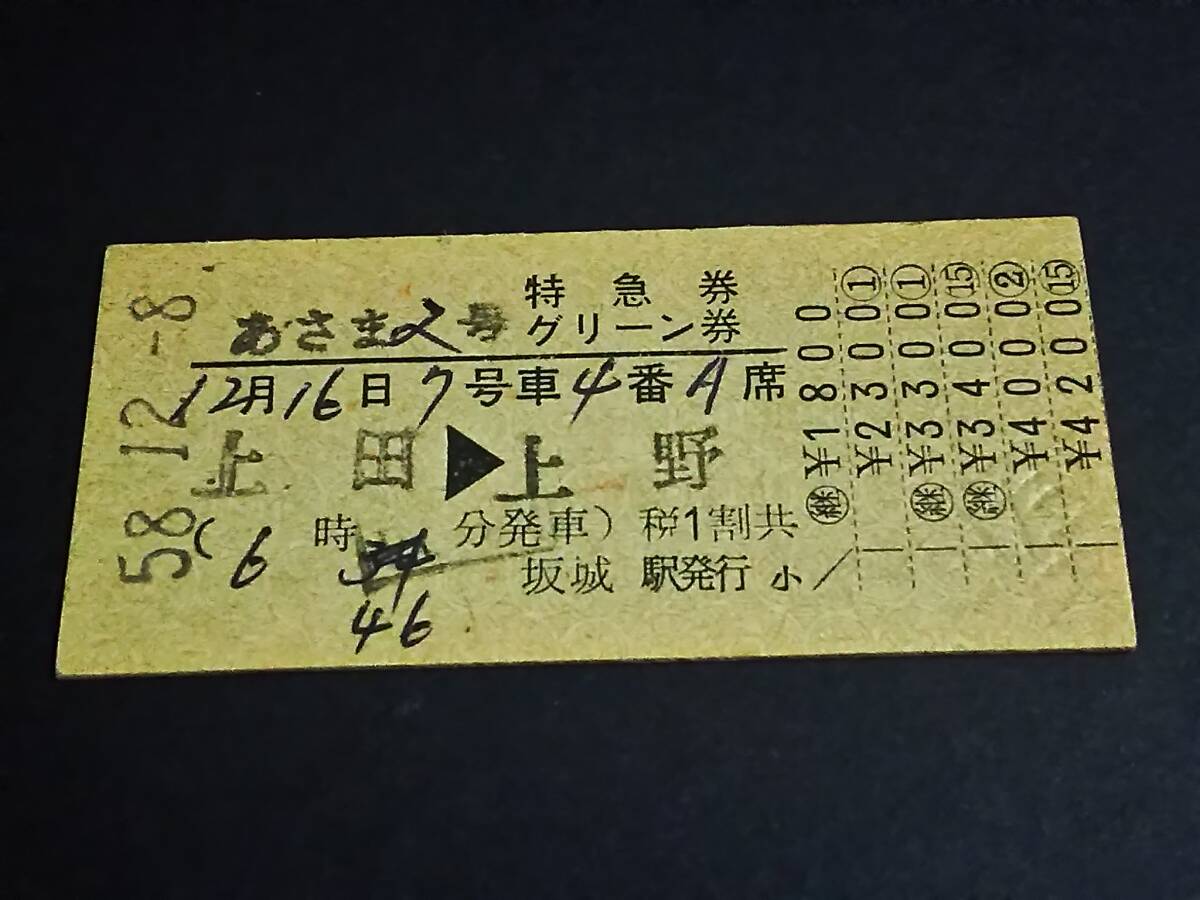 58.12.-8
特急券
あさま2号 グリーン券
12月16日 7号車 4番A席
田▶上野
(6時 分発車) 税1割共
46
坂城 駅発行 小
㋿¥1800
¥2300①
¥3300①
¥3400⑮
¥4000②
¥4200⑮